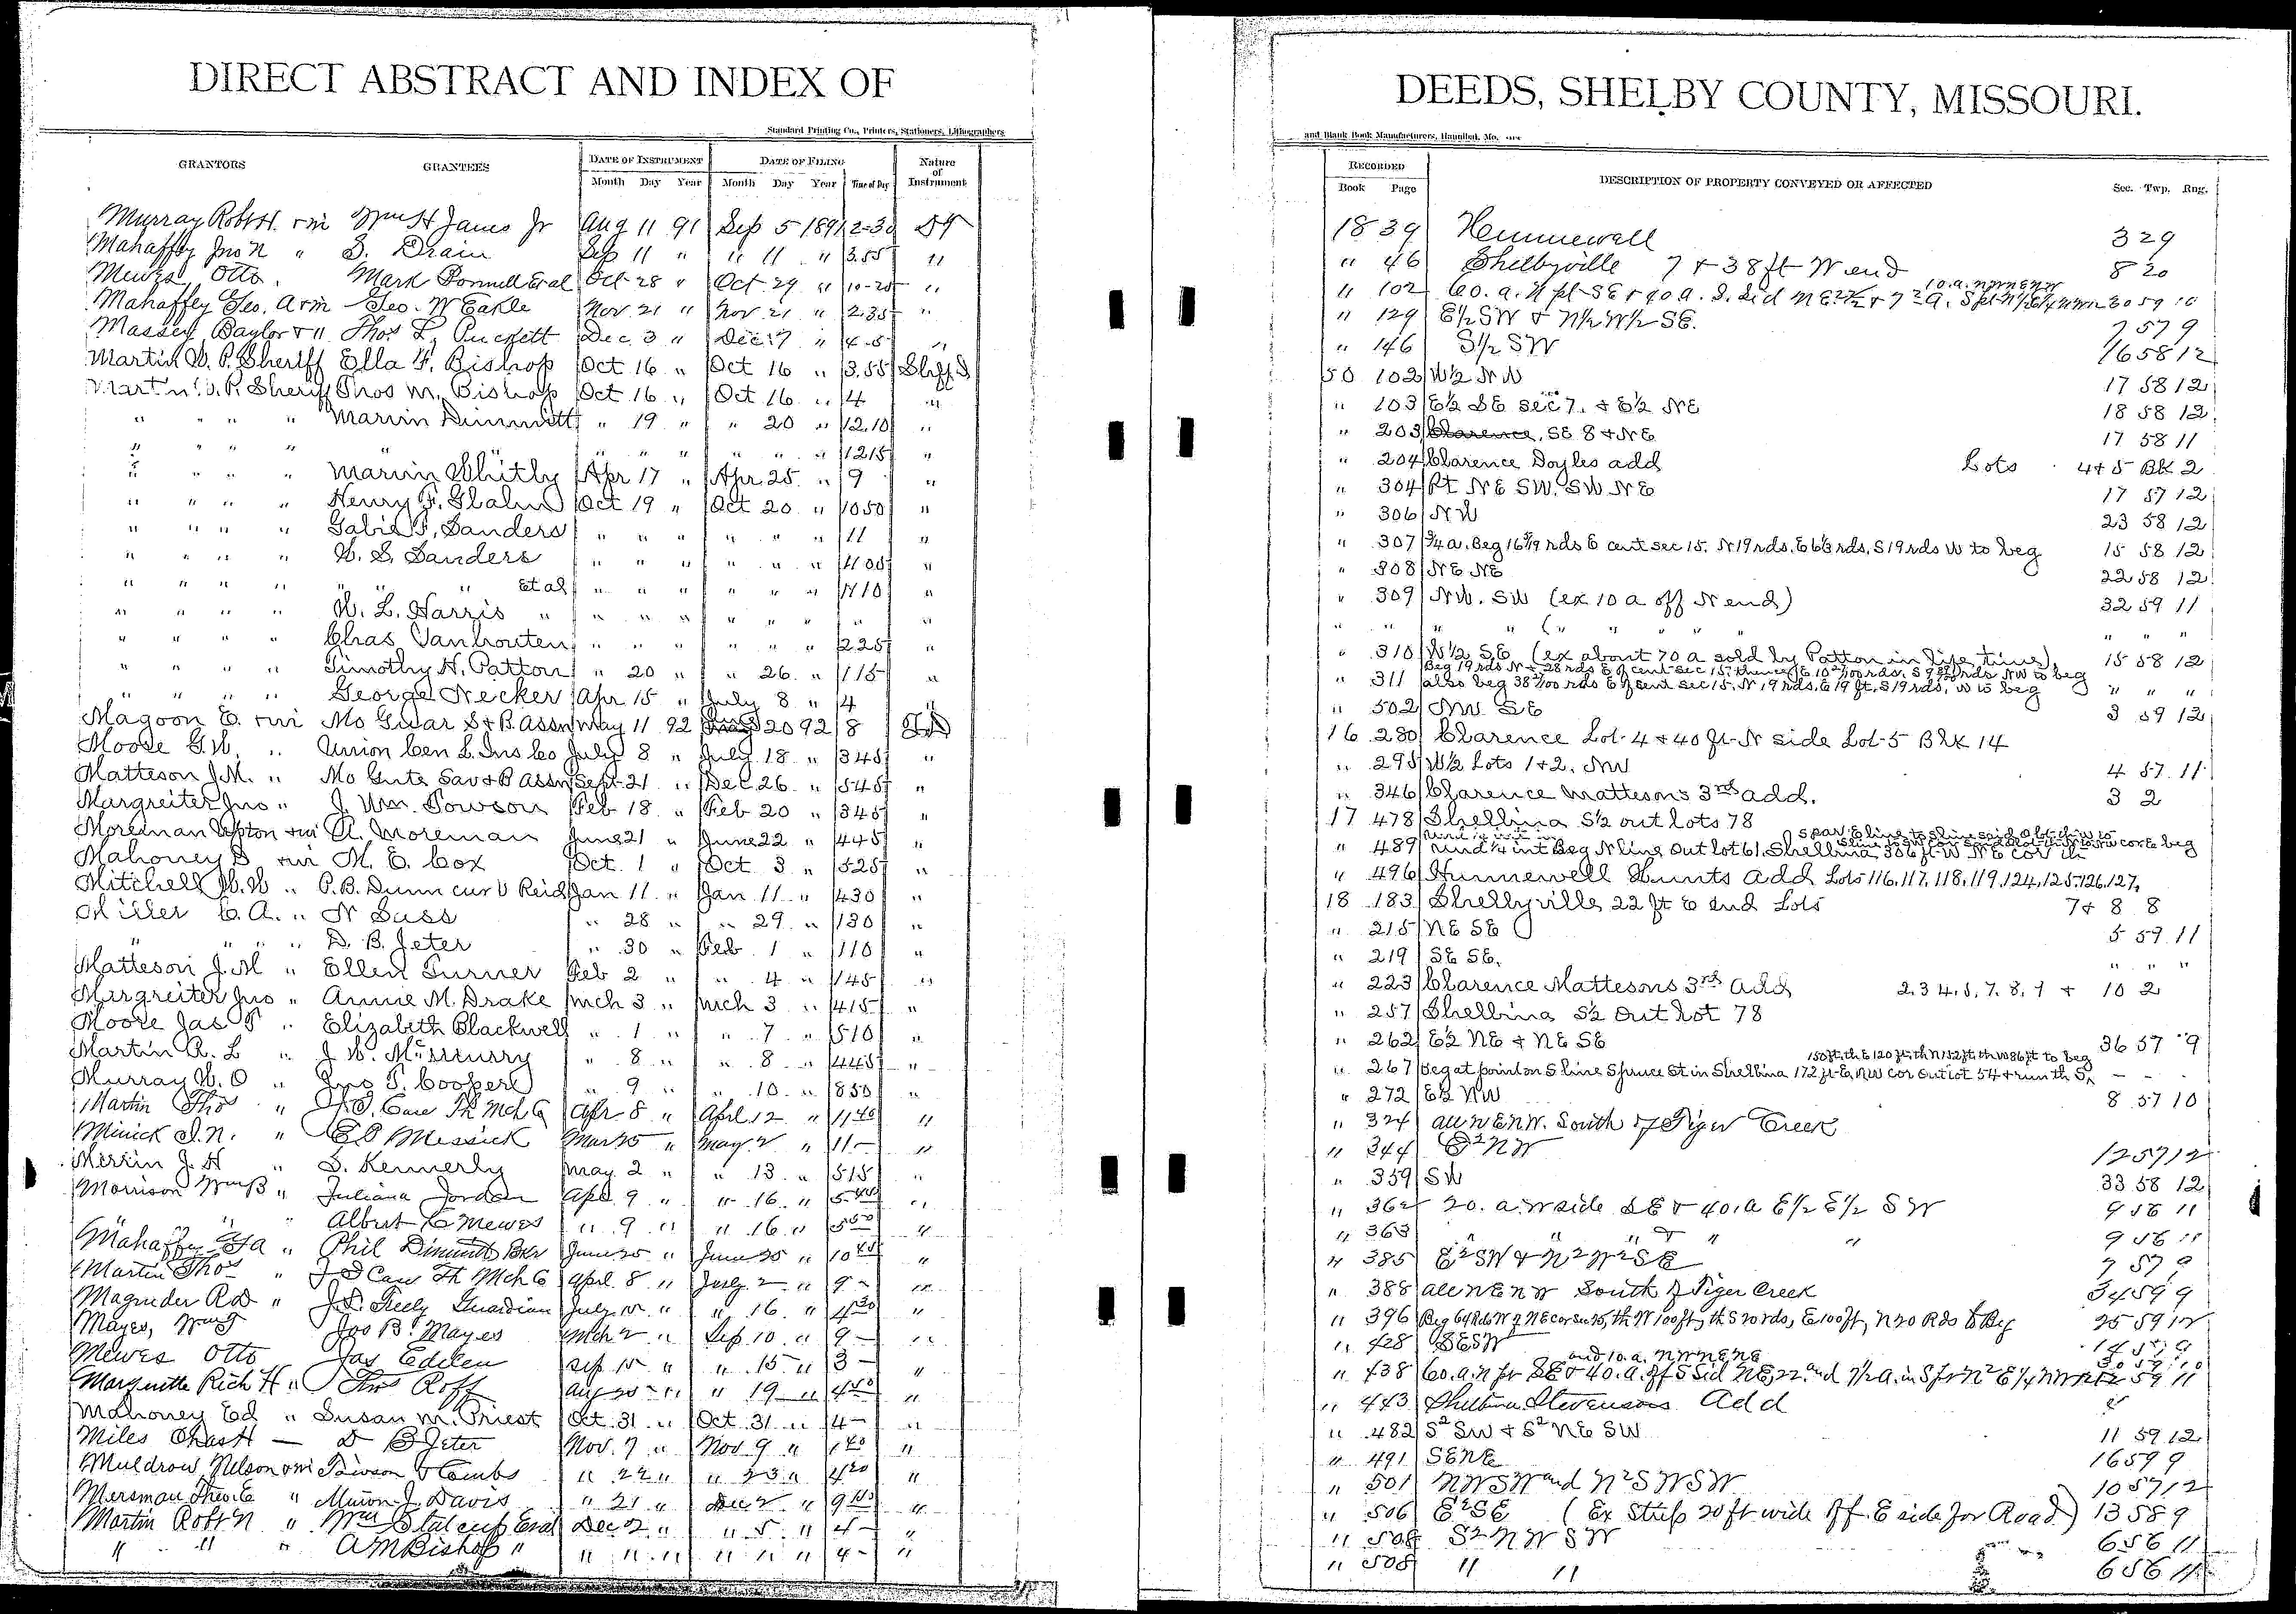 DIRECT ABSTRACT AND INDEX OF
Standard Printing Co., Printers, Stationers, Lithographers
GRANTORS GRANTEES DATE OF INSTRUMENT DATE OF FILING Nature of Instrument
Month Day Year Month Day Year Time of Day
Murray Robt H. + wi Wm H Janes Jr Aug 11 91 Sep 5 1891 2-30
Mahaffey Jno N " S. Drain Sep 11 " " 11 " 3.55 "
Mewes Otto. Mark Et al Oct 28 " Oct 29 " 10-20 "
Mahaffey Geo. A + wi Geo. W Earle Nov 21 " Nov 21 " 2.35 "
Massey Baylor + " Thos L. Puckett Dec 3 " Dec 17 " 4-5 "
Martin W. P. Sheriff Ella F. Bishop Oct 16 " Oct 16 " 3.55 Shff D
Martin W. P. Sheriff Thos M. Bishop Oct 16 " Oct 16 " 4 "
" " " " Marvin Dimmitt " 19 " " 20 " 12.10 "
" " " " " " " " " " " 1215 "
" " " " Marvin Whitly Apr 17 " Apr 25 " 9 "
" " " " Henry F. Glahn Oct 19 " Oct 20 " 1050 "
" " " " Gabie F. Sanders " " " " " " 11 "
" " " " W. S. Sanders " " " " " " 405 "
" " " " " " " et al " " " " " " 410 "
" " " " W. L. Harris " " " " " " " " "
" " " " Chas Vanhouten " " " " " " 225 "
" " " " Timothy H. Patton " 20 " " 26 " 115 "
" " " " George Necker Apr 15 " July 8 " 4 "
Magoon E. + wi Mo Guar S + B Assn May 11 92 20 92 8
Moose G. W. " Union Cen L. Ins Co July 8 " July 18 " 345 "
Matteson J. M. " Mo Sav + B Assn Sept 21 " Dec 26 " 545 "
Margreiter Jno " J. Wm. Towson Feb 18 " Feb 20 " 345 "
Moreman Upton + wi A. Moreman June 21 " June 22 " 445 "
Mahoney D + wi M. E. Cox Oct. 1 " Oct 3 " 525 "
Mitchell W. W " P. B. Dunn cur Reid Jan 11 " Jan 11 " 430 "
Miller E. A. " N Sass " 28 " " 29 " 130 "
" " " " D. B. Jeter " 30 " Feb 1 " 110 "
Matteson J. M " Ellen Turner Feb 2 " " 4 " 145 "
Margreiter Jno " Annie M. Drake Mch 3 " Mch 3 " 415 "
Moore Jas T " Elizabeth Blackwell " 1 " " 7 " 510 "
Martin A. L " J. W. McMurry " 8 " " 8 " 445 "
Murray W. O " Jno T. Cooper " 9 " " 10 " 850 "
Martin Thos " J. I. Case Th Mch Co Apr 8 " April 12 " 11 40 "
Minick I. N. " E D Messick Mar 25 " May 2 " 11- "
Merrin J. H " S. Kennerly May 2 " " 13 " 515 "
Morrison Wm B " Juliana Jordan Apr 9 " " 16 "
" " " Albert E Mewes " 9 " " 16 " 5 50 "
Mahaffey " Phil Dimmitt Bkr June 25 " June 25 " 10 45 "
Martin Thos " J I Case Th Mch Co April 8 " July 2 " 9- "
Magruder R D " Guardian July 15 " " 16 " 4 30 "
Mayes, Wm Jas B. Mayes Mch 2 " Sep 10 " 9- "
Mewes Otto Jas Edelen Sep 15 " " 15 " 3- "
Rich H " Roff Aug 20 " " 19 " 4 40 "
Mahoney Ed " Susan M. Priest Oct 31 " Oct. 31 " 4- "
Miles Chas H — D B Jeter Nov. 7 " Nov 9 " 1 40 "
Muldrow Nelson + wi Towson & Combs " 22 " " 23 " 4 20 "
Mersman Theo. E " J. Davis " 21 " Dec 2 " 9 "
Martin Robt N " Wm Stalcup Et al Dec 2 " " 5 " 4- "
" " " A M Bishop " " " " " " " 4- "
DEEDS, SHELBY COUNTY, MISSOURI.
and Blank Book Manufacturers, Hannibal, Mo.
RECORDED DESCRIPTION OF PROPERTY CONVEYED OR AFFECTED Sec. Twp. Rng.
Book Page
18 39 Hunnewell 3 29
" 46 Shelbyville 7 + 38 ft W end 8 20
" 102 60. a. N pt SE + 40 a. S. Sid
" 129 E½ SW & N½ W½ SE. 7 57 9
" 146 S½ SW 16 58 12
50 102 W½ NW 17 58 12
" 103 E½ SE sec 7. & E½ NE 18 58 12
" 203 Clarence, SE 8 & NE 17 58 11
" 204 Clarence Doyles add Lots 4+5 Blk 2
" 304 Pt NE SW. SW NE 17 57 12
" 306 NW 23 58 12
" 307 ¾ a. Beg 16 rds E cent sec 15. N 19 rds. E 6⅓ rds. S 19 rds W to beg 15 58 12
" 308 NE NE 22 58 12
" 309 NW. SW (ex 10 a off N end) 32 59 11
" " " " ( " " " " " " "
" 310 W½ SE (ex about 70 a sold by Patton in life time) 15 58 12
" 311 Beg 19 rds N + 28 rds E of cent sec 15. thence E 10 rds. S rds NW to beg
also beg 38 rds E of cent sec 15. N 19 rds. E 19 ft. S 19 rds, W to beg " " "
" 502 NW SE 3 59 12
16 280 Clarence Lot 4 + 40 ft N side Lot 5 Blk 14
" 295 W½ Lots 1+2. NW 4 57 11
" 346 Clarence Mattesons 3rd add. 3 2
17 478 Shelbina S½ out lots 78
" 489 und ¼ int Beg N line Out lot 61. Shelbina 306 ft W NE cor
" 496 Hunnewell Hunts Add Lots 116, 117, 118, 119, 124, 125, 126, 127,
18 183 Shelbyville 22 ft E end Lots 7 + 8 8
" 215 NE SE 5 59 11
" 219 SE SE. " " "
" 223 Clarence Mattesons 3rd Add 2. 3 4. 5, 7. 8. 9 + 10 2
" 257 Shelbina S½ Out Lot 78
" 262 E½ NE & NE SE 36 57 9
150 ft, th E 120 ft, th N 152 ft, th W 86 ft to beg
" 267 Beg at point on S line Spruce St in Shelbina 172 ft E. NW cor Out lot 54 + run th S. - - -
" 272 E½ NW 8 57 10
" 324 all NE NW. South of Tiger Creek
" 344 E2 NW 12 57 12
" 359 SW 33 58 12
" 362 20. a. W side SE & 40. a E½ E½ SW 9 56 11
" 363 " " & " " 9 56 11
" 385 E2 SW & N2 W2 SE 7 57 9
" 388 all NE NW South of Tiger Creek 34 59 9
" 396 Beg 64 Rds W of NE cor Sec 25, th W 100 ft, th S 20 rds, E 100 ft, N 20 Rds to Beg 25 59 12
" 428 SE SW 14 57 9
and 10. a. NW NE NE 30 59 10
" 438 60. a. N pr SE & 40. a. off S Sid NE, 22 and 7½ a. in S pr N2 E¼ NW 59 11
" 443 Shelbina Stevensons Add
" 482 S2 SW & S2 NE SW 11 59 12
" 491 SE NE 16 59 9
" 501 NW SW and N2 SW SW 10 57 12
" 506 E2 SE (Ex Strip 20 ft wide off E side for Road) 13 58 9
" 508 S2 NW SW 6 56 11
" 508 " " 6 56 11